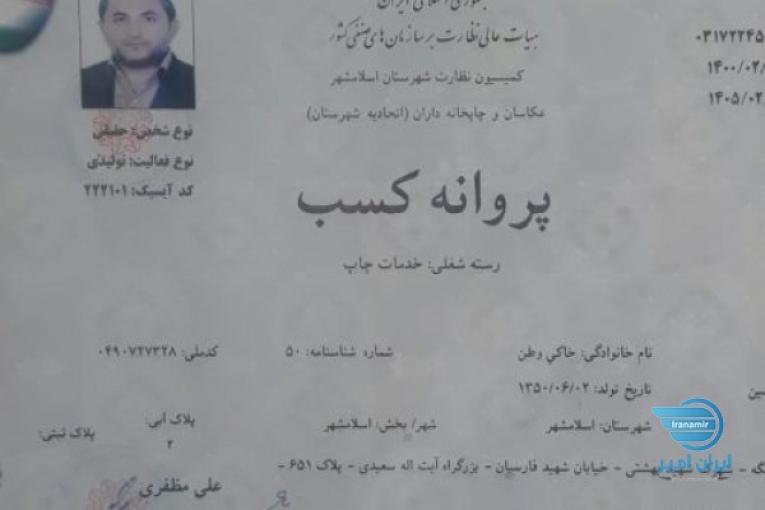 جمهوری اسلامی ایران
هیات عالی نظارت بر سازمان های صنفی کشور
کمیسیون نظارت شهرستان اسلامشهر
عکاسان و چاپخانه داران (اتحادیه شهرستان)
۰۳۱۷۲۲۴۵
۱۴۰۰/۰۲/
۱۴۰۵/۰۲/
نوع شخص: حقیقی
نوع فعالیت: تولیدی
کد آیسیک: ۲۲۲۱۰۱
پروانه کسب
رسته شغلی: خدمات چاپ
نام خانوادگی: خاکي وطن شماره شناسنامه: ۵۰ کدملی: ۰۴۹۰۷۲۷۳۲۸
تاریخ تولد: ۱۳۵۰/۰۶/۰۲
شهرستان: اسلامشهر شهر/ بخش: اسلامشهر پلاک آبی: ۲ پلاک ثبتی:
بهشتی - خیابان شهید فارسیان - بزرگراه آیت اله سعیدی - پلاک ۶۵۱ -
علی مظفری
Iranamir
ایران امیر